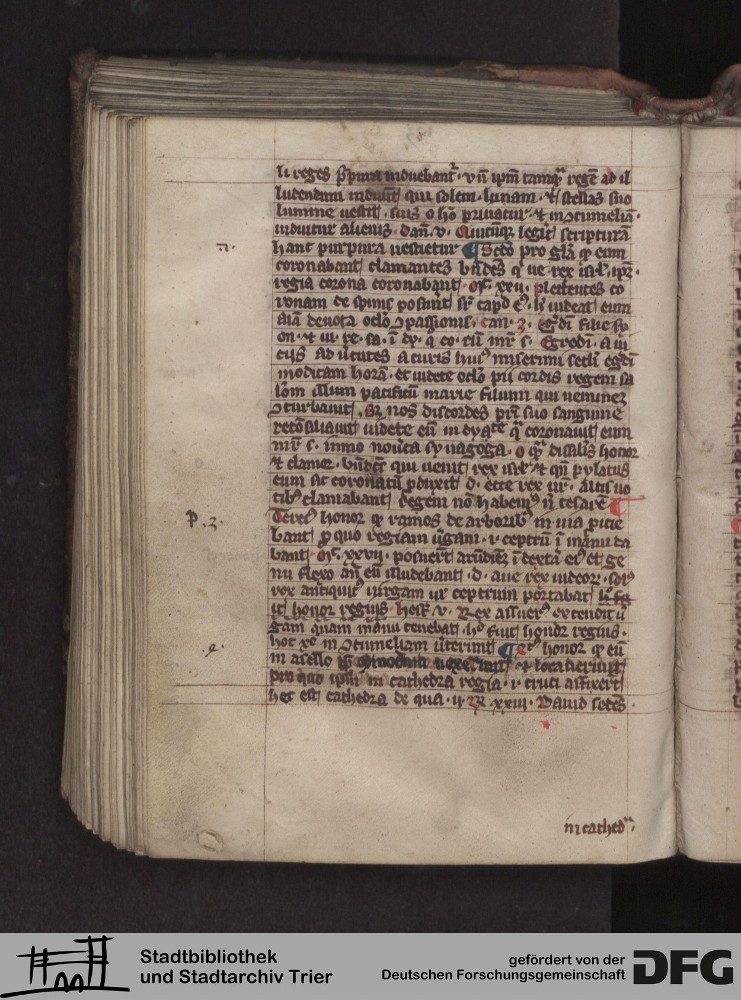 li reges purpura induebantᷣ · vn̄ ipm̄ tamqᷓ regē ad il
ludendum induūt qui solem · lunam · ⁊ stellas suo
lumine uestit · suis o hō priuatur · ⁊ in ↄtumeliā ·
induitur alienis · dañ · v · Quicūqꝫ legit scripturā
hanc purpura uestietur ¶ Scdo pro glā qͥ eum
coronabant clamantes
regia corona coronabant · Mͭ · xxvii · plectentes co
ronam de spinis posūit sͬ capđ eꝰ · h̓ uideat eum
aīa deuota oclō ↄpassionis · Can · 3 · Egͤdi filie sy
on · ⁊ ui · re · sa · ī dy · q̄ co · eū mͬ s · Egredi · a ui
cijs ad ūtutes a curis huiꝰ miserrimi secli egͤdi
modicam horā · et uidete oclō pii cordis regem sa
lom̄ illum pacificū marie filium qui neminez
ↄturbauit · Sꝫ nos discordes pr̄i suo sanguine
recōsiliauit uidete eū in dyaͩte qͦ coronauit eum
mͬ s · immo nouͬca synagoga · o qͣ disͥilis honor
⁊ clamor · qui uenit rex isrl̓ ⁊ qn̄ pylatus
eum sic coronatū ꝓduxit · d · ecce rex ur̄ · altis uo
cibꝰ clamabant Regem nō habemꝰ nͥ cesarē ¶
Tercͦ honor qͥ ramos de arboribꝰ in uia ꝓicie
bant ꝓ quo regiam ūgam · i · ceptrū ī manu da
bant · Mͭ · xxvii · posuer̄t arūdīeꝫ ī dextͣa eiꝰ et ge
nu flexo an̄ eū illudebant · d · aue rex iudeoꝝ · Solꝰ
rex antiquitꝰ uirgam uͬ ceptrum portabat
honor regius · hesͭ · v · Rex assuerꝰ extendit ū
gam quam manu tenebat · hͦ fuit honor regius ·
hoc xͦ in ↄtumeliam ūterunt ¶ honor qͥ eū
in asello ⁊ loca
pro quo ipm̄ in cathedra regia · i · cruci affixer̄t
hec est cathedra de qua · ii · R · xxiii · Dauid sedēs ·
P · 2 ·
· e ·
in cathedͣ ·
Stadtbibliothek
und Stadtarchiv Trier
gefördert von der
Deutschen Forschungsgemeinschaft
DFG